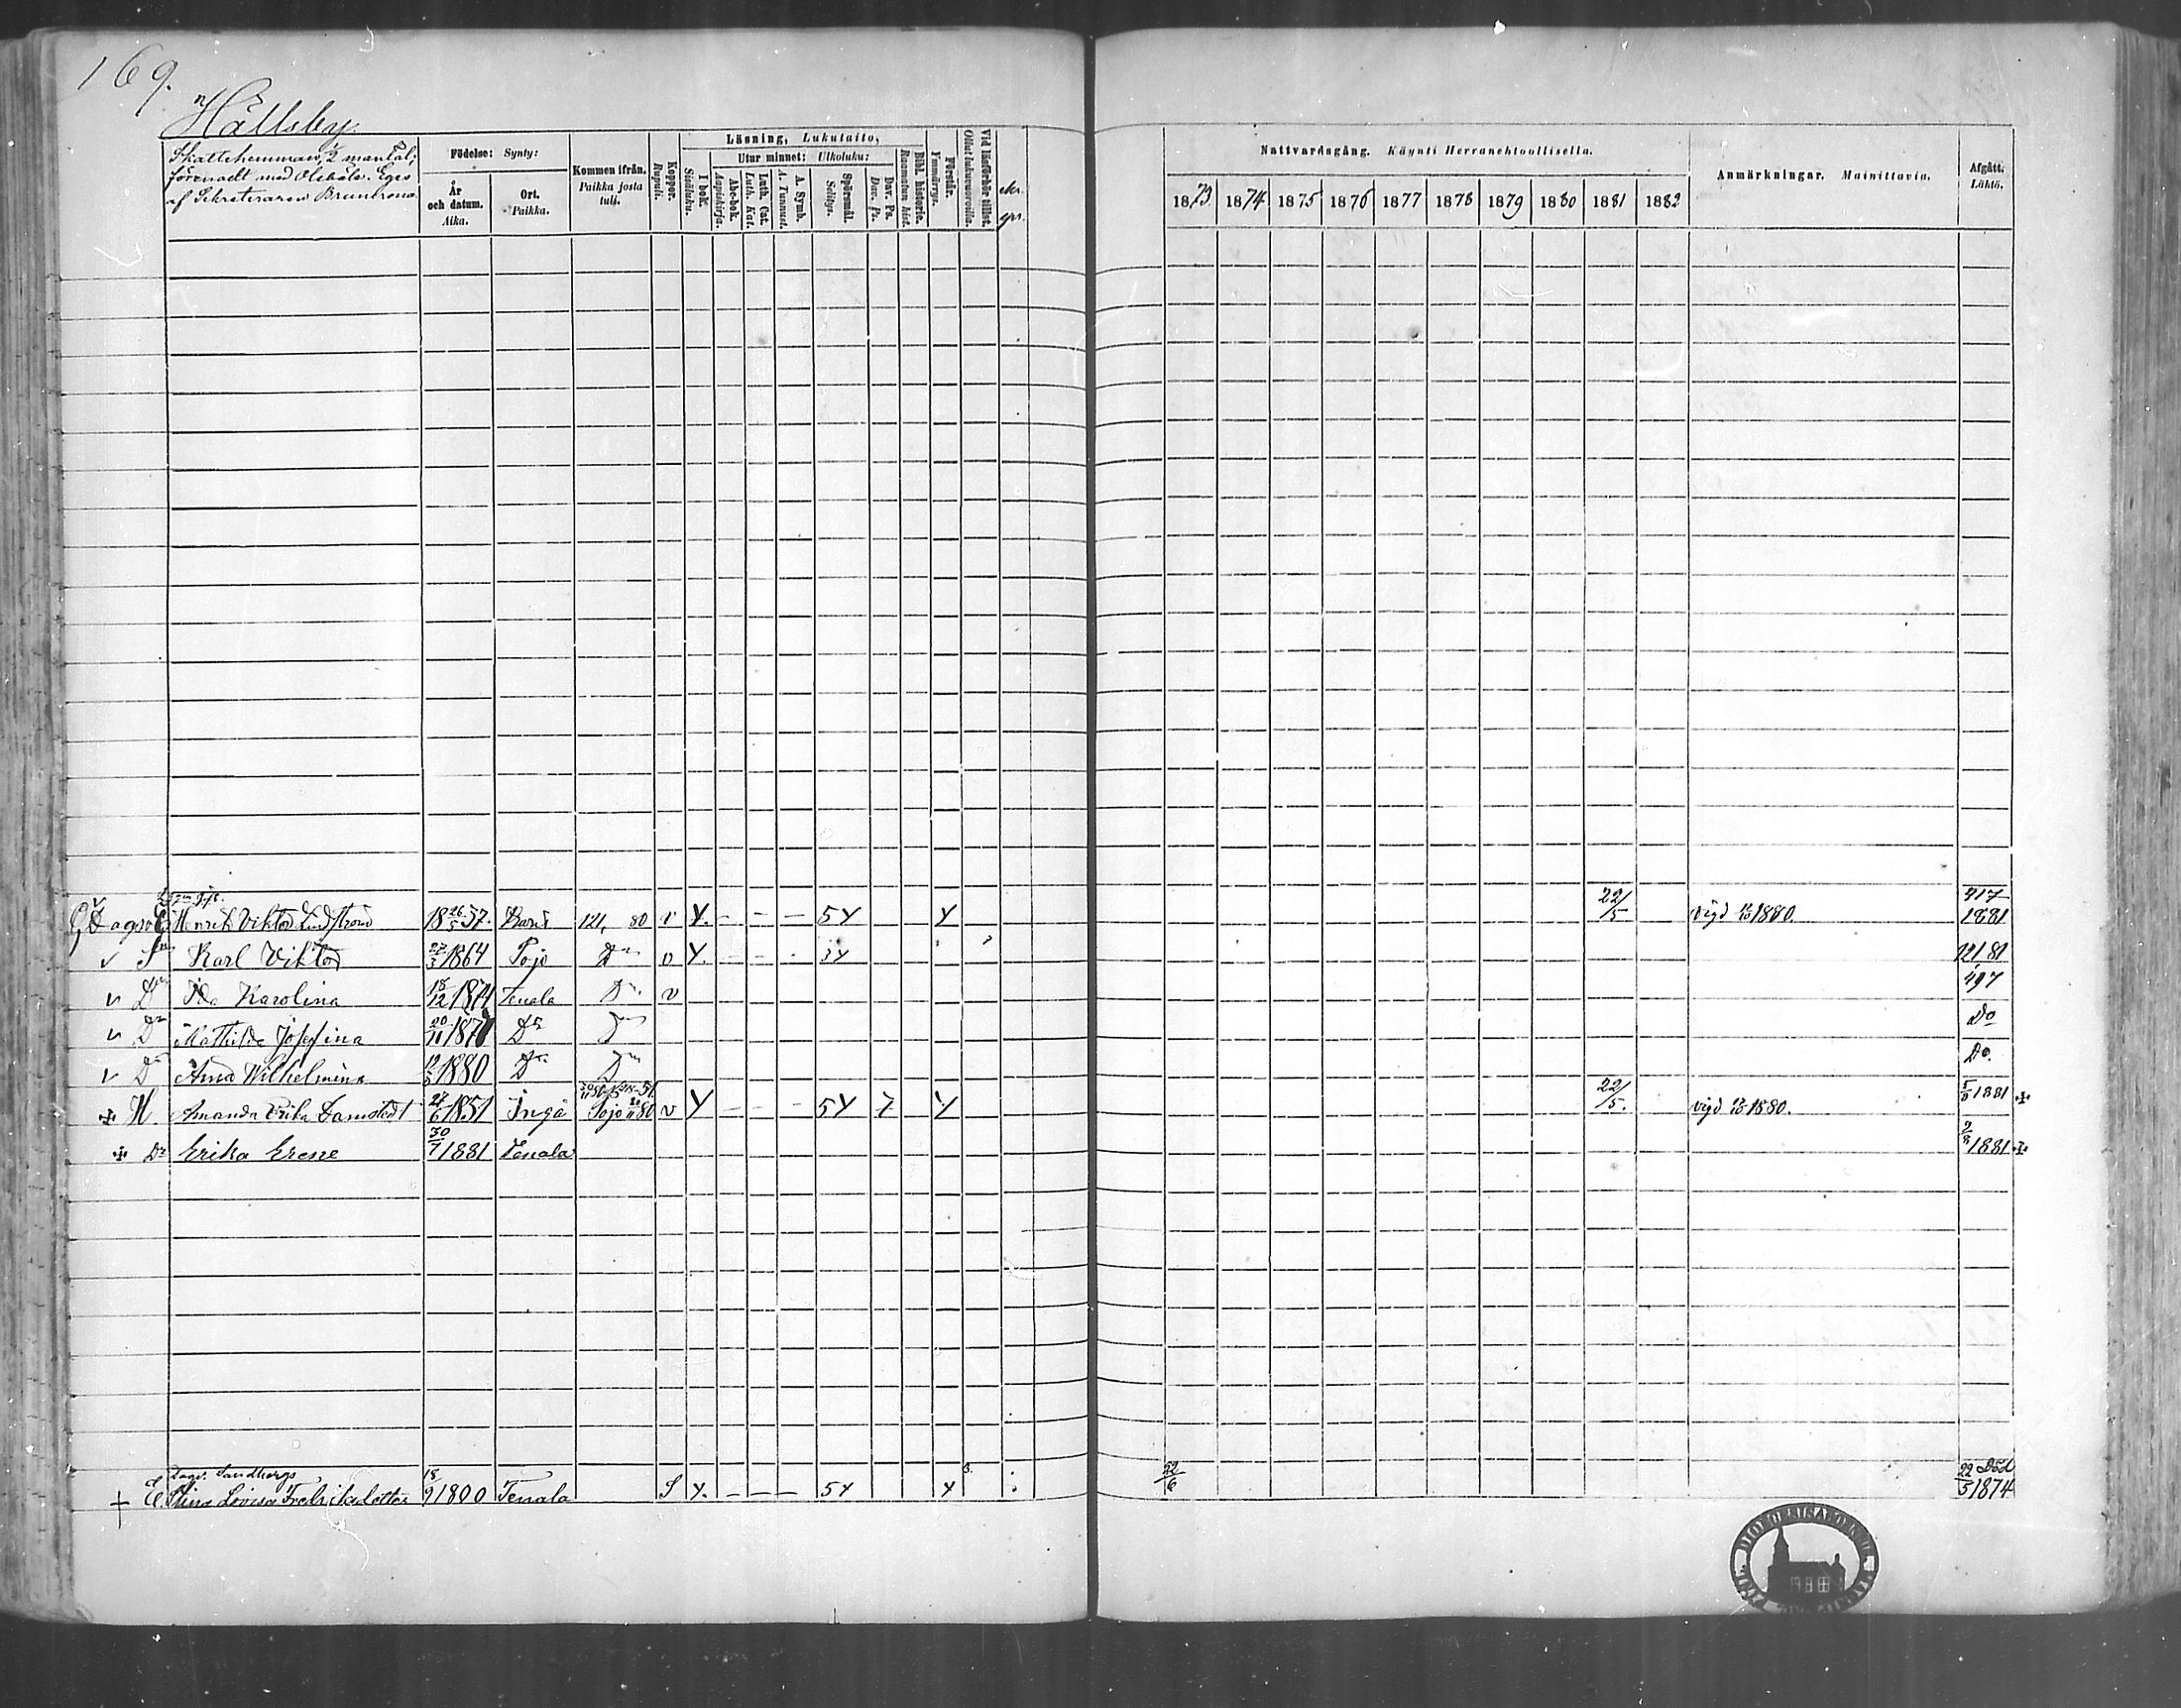 169.
Hållsby.
Skattehemman, 1/2 mantal,
förenadt med Olsböle. Eges
af Sekreteraren Brunkrona.
Födelse: Synty:
År och datum. Aika.
Ort. Paikka.
Kommen ifrån. Paikka josta tulj.
Koppor. Rupuli.
Läsning, Lukutaito,
I bok. Sisäluku.
Utur minnet: Ulkoluku:
Abc-bok. Aapiskirja.
Luth. Cat. Luth. Kat.
A. Symb. A. Tunnust.
Spörsmål. Selitys.
Dav. Ps. Dav. Ps.
Bibl. historie. Raamatun hist.
Förstår. Ymmärrys.
Vid läsförhör tillst. Ollut lukuvuoroilla.
Nattvardsgång. Käynti Herranehtoollisella.
1873 1874 1875 1876 1877 1878 1879 1880 1881 1882
Anmärkningar. Mainittavia.
Afgått. Lähtö.
Henrik Viktor Lindström 18 26/5 37. Karis 121, 80 v Y. - - - 5Y Y 22/5 vigd 1880. 417 1881
Karl Viktor 27/3 1864 Pojo Do v Y. 3Y 121 81
Ida Karolina 18/12 1874 Tenala Do v 497
Mathilda Josefina 20/11 187 Do Do Do
Anna Wilhelmina 1880 Do Do Do.
H. Amanda Erika 1851 Ingå Pojo 80 v Y - - - 5Y 7 Y 22/5. vigd 1880. 1881
Dr Erika Erene 30/7 1881 Tenala 1881
Sandbergs
E. Stina Lovisa Fredriksdotter 18/9 1800 Tenala S Y. - - - 5Y Y 22/6 Död 22/5 1874